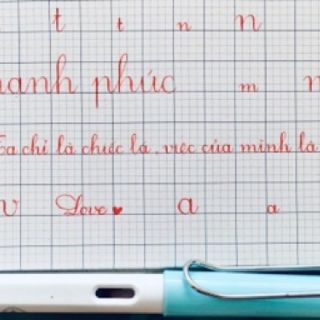 t t n n
hanh phúc m n
Ta chỉ là chiếc lá, việc của mình là
v Love a a